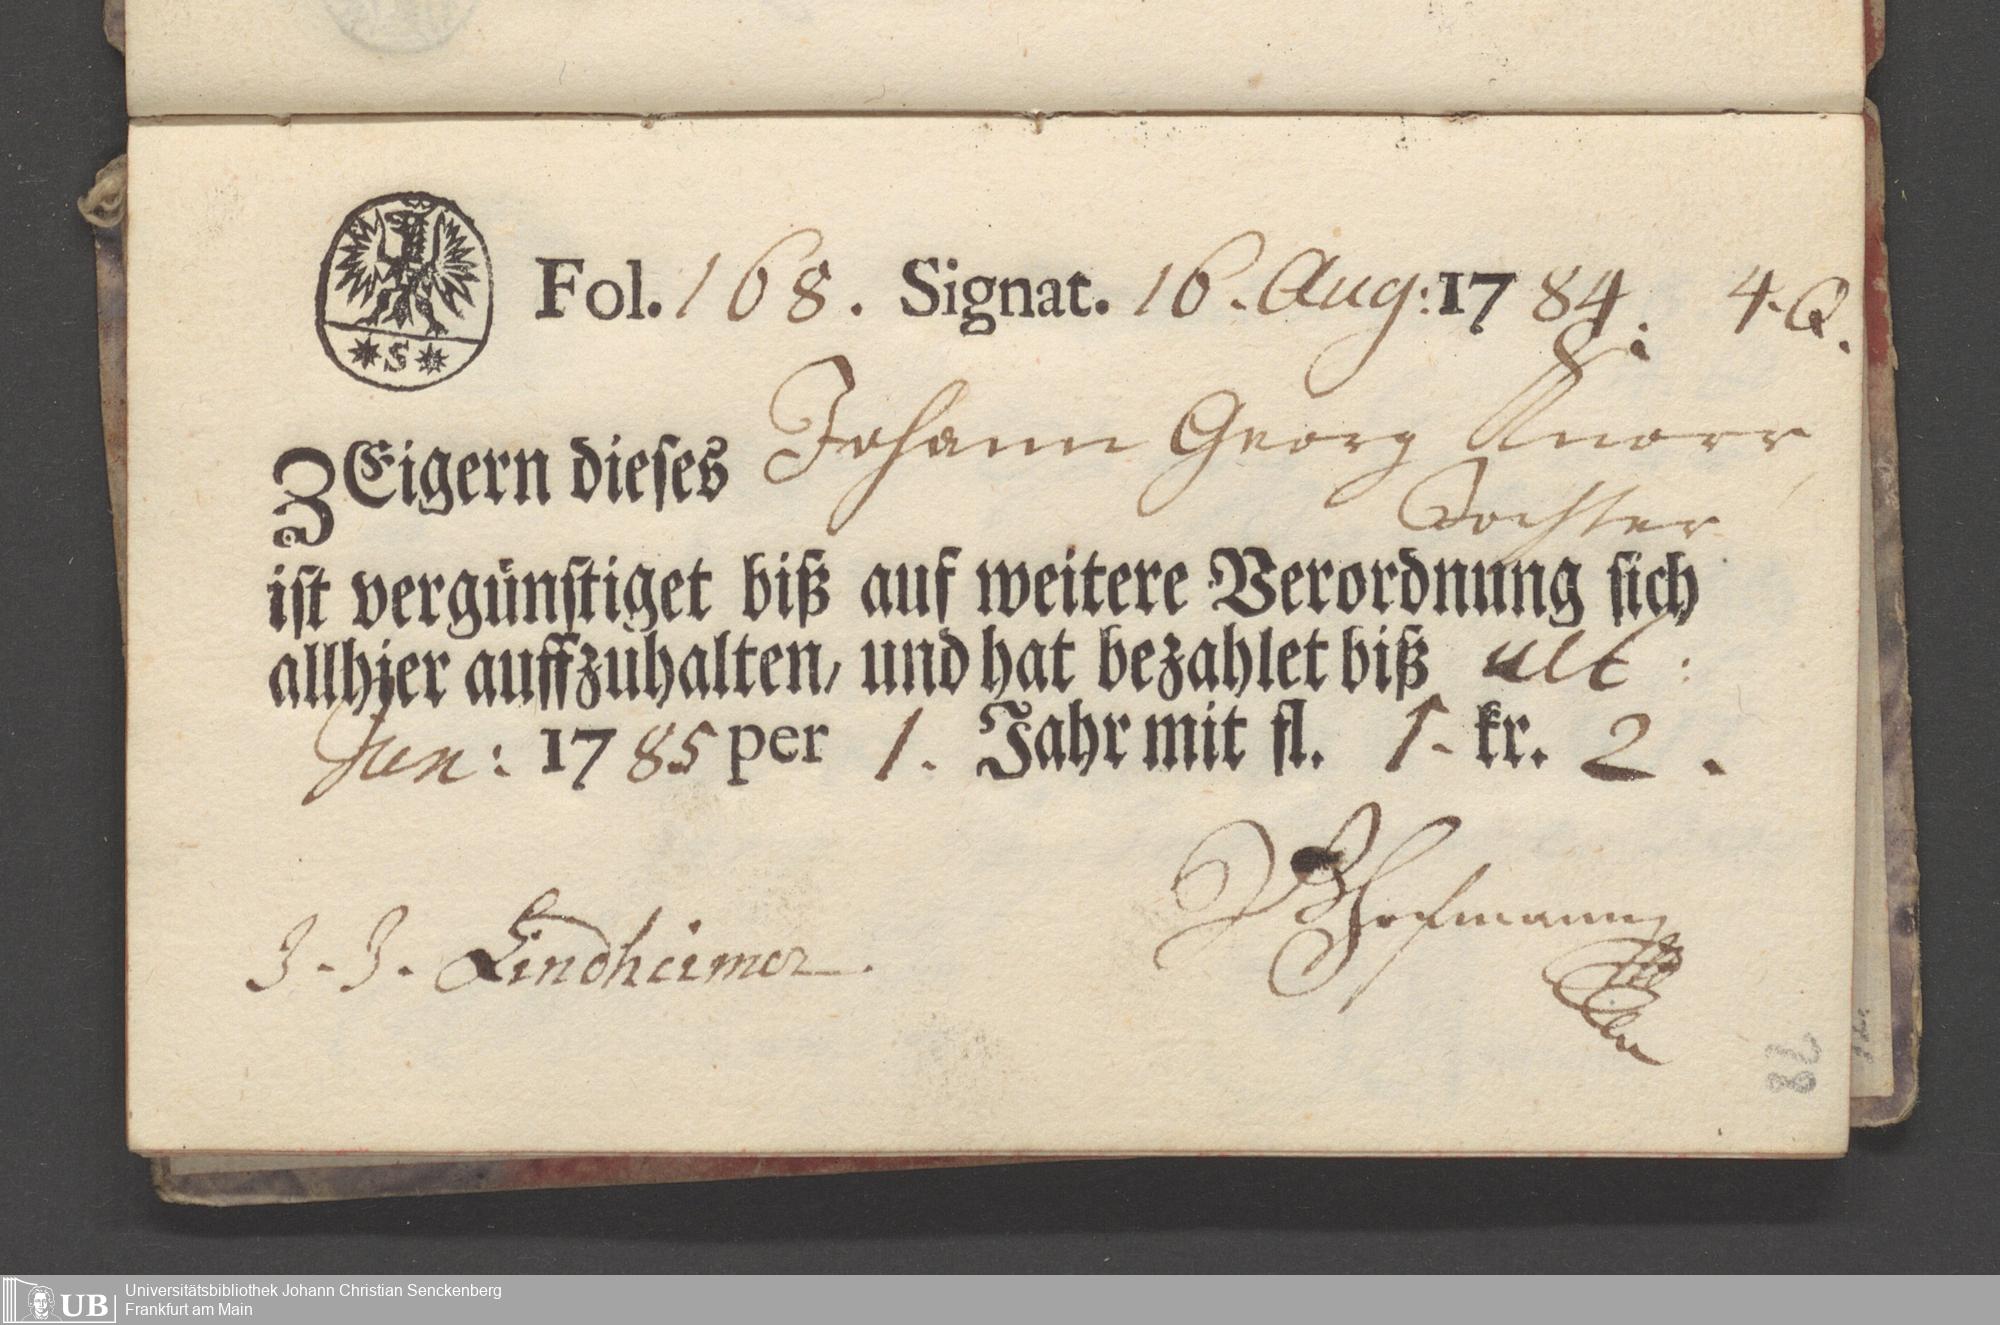 Fol. 168. Signat. 16. Aug: 1784. 4. Q.
* S *
ZEigern dieses Johann Georg Knorr,
Tochter
ist vergünstiget biß auf weitere Verordnung sich
allhier auffzuhalten, und hat bezahlet biß ult:
Jun: 1785 per 1. Jahr mit fl. 1. kr. 2.
J. J. Lindheimer. Hofmann
28
UB Universitätsbibliothek Johann Christian Senckenberg
Frankfurt am Main